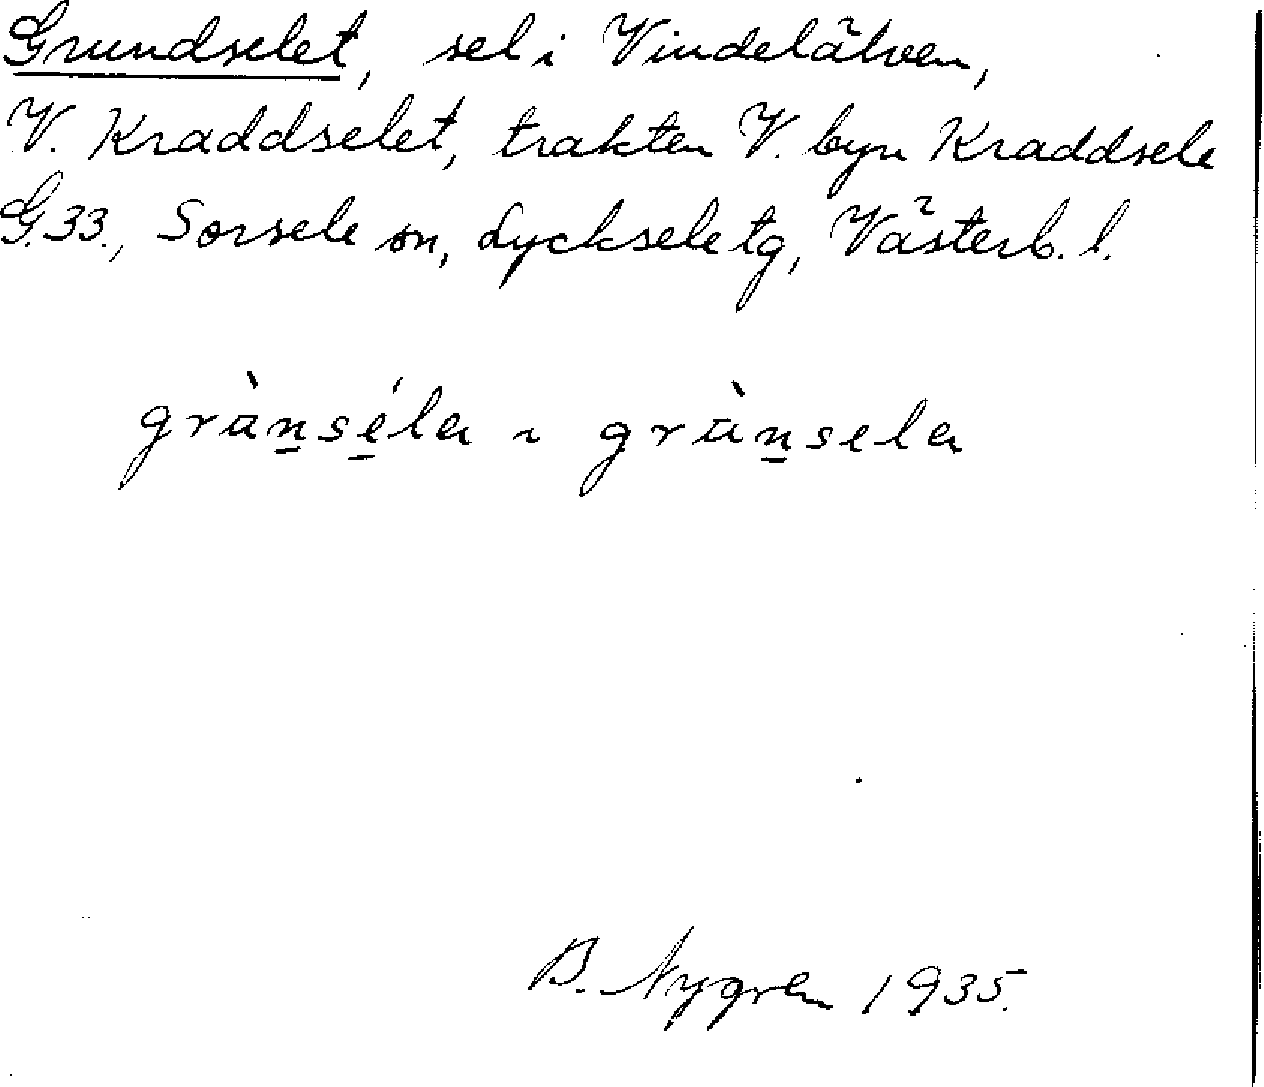 Grundselet, sel i Vindelälven,
V. Kraddselet, trakten V. byn Kraddsele
G.33., Sorsele sn, Lycksele tg, Västerb. l.
grùn̲sé̲la ~ grùn̲sela
B. Nygren 1935.